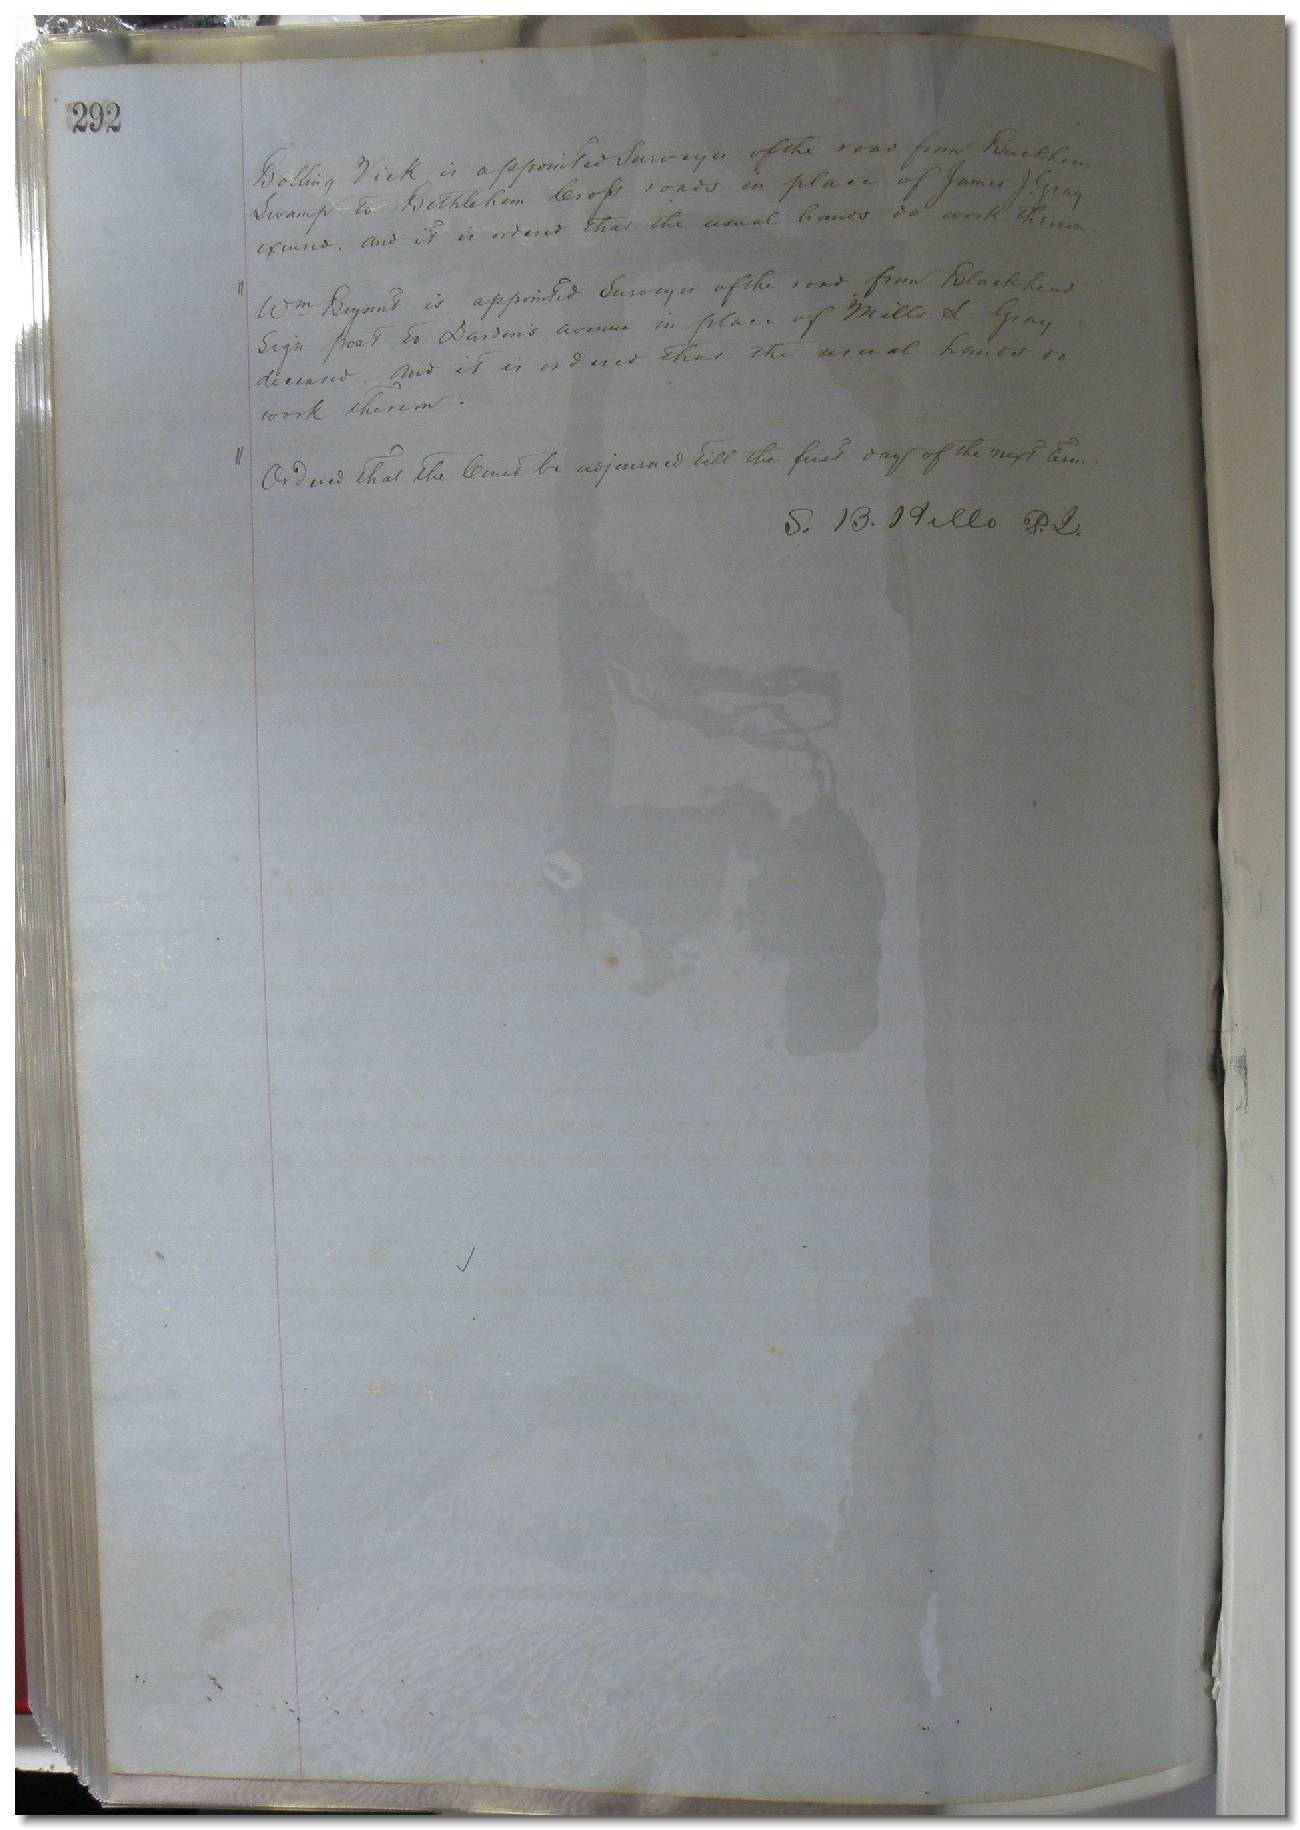 292
Bolling Vick is appointed Surveyor of the road from Buckhorn
Swamp to Bethlehem Cross roads in place of James J. Gray
excused. and it is ordered that the usual hands do work thereon
"
Wm Bryant is appointed Surveyor of the road from Blackhead
Sign post to Darden's avenue in place of Mills L Gray
deceased. And it is ordered that the usual hands do
work thereon.
"
Ordered that the Court be adjourned till the first day of the next term.
S. B. Wills P.J.